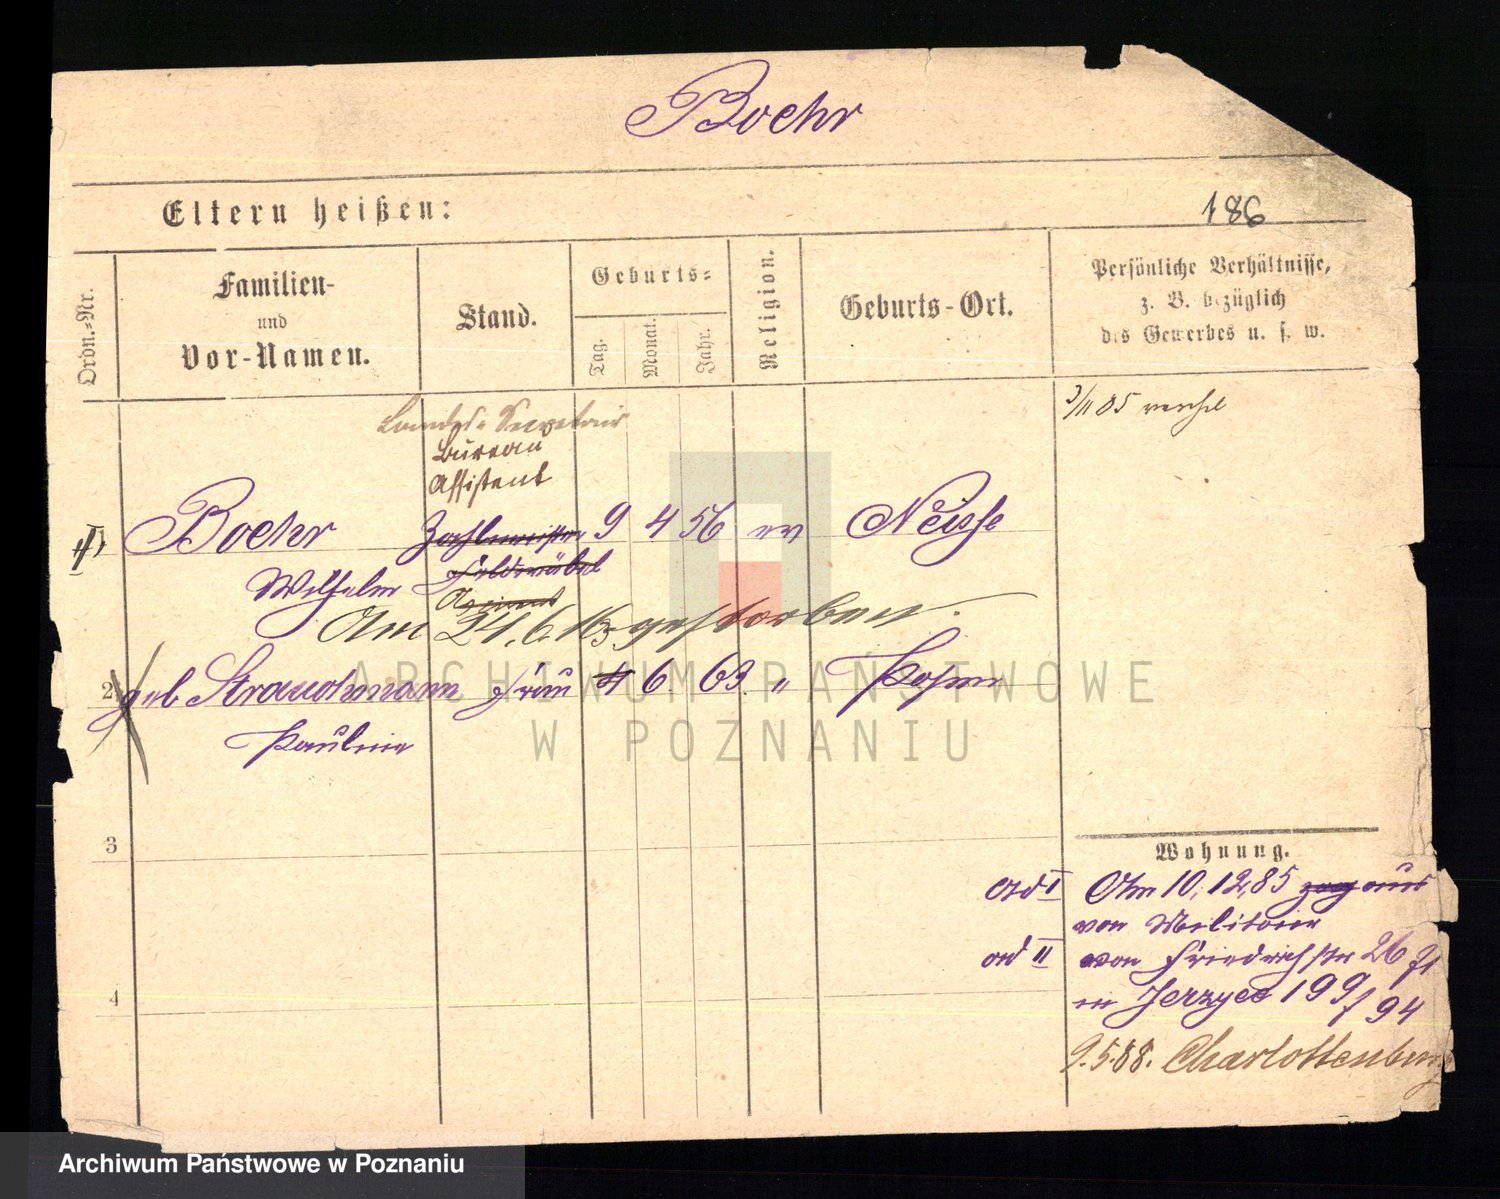 Boehr
Eltern heißen:
186
Ordn.-Nr.
Familien-
und
Vor-Namen.
Stand.
Geburts-
Tag.
Monat.
Jahr.
Religion.
Geburts-Ort.
Persönliche Verhältnisse,
z. B. bezüglich
des Gewerbes u. s. w.
3/11 85
Landes-Secretair
Bureau
Assistent
Boehr Zahlmeister 9 4 56 ev Neisse
Wilhelm Feldwäbel
Am 24. 6. gestorben.
2 geb Strauchmann Frau 4 6 63 " Posen
Pauline
3
4
Wohnung.
ad I Am 10.12.85 zog aus
von Militair
ad II von Friedrichstr 26
in Jerzyce 199/94
9.5.88. Charlottenburg
ARCHIWUM PAŃSTWOWE
W POZNANIU
Archiwum Państwowe w Poznaniu